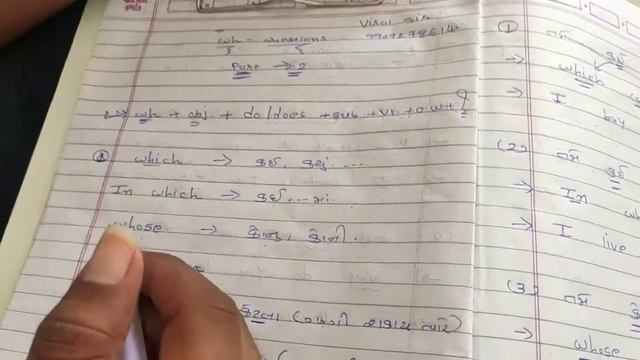 Viral Sir
wh - questions
Part → 2
wh + obj + do/does + sub + v1 + o.w + ?
which → કઈ, કયું ....
In which → કઈ ... માં
whose → કોનું, કોની.
કેટલા (
①
→ which
→ I buy
(2)
→ In
→ I live
(3)
→ whose